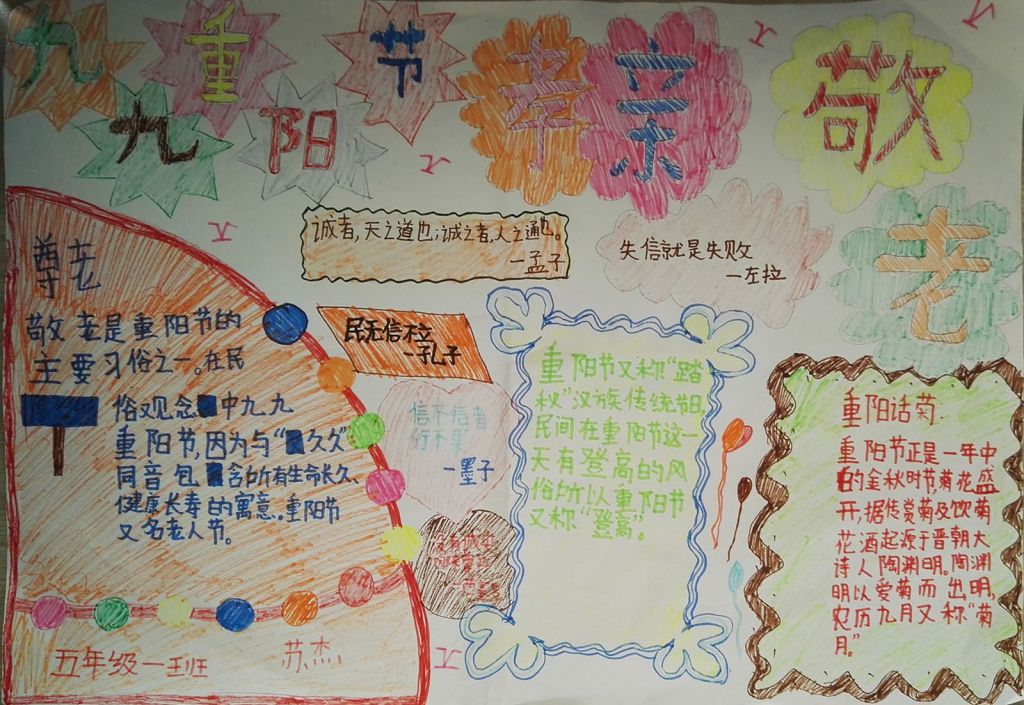 九
九
重
阳
节
孝
亲
敬
老
诚者，天之道也；诚之者，人之通也。
一孟子
失信就是失败
一左拉
民无信不立
一孔子
信不信者
行不果
一墨子
尊老
敬老是重阳节的
主要习俗之一。在民
俗观念中九九
重阳节，因为与“久久”
同音包含所有生命长久、
健康长寿的寓意。重阳节
又名老人节。
五年级一班
苏杰
重阳节又称“踏
秋”汉族传统节日，
民间在重阳节这一
天有登高的风
俗所以重阳节
又称“登高”。
重阳话菊
重阳节正是一年中
的金秋时节，菊花盛
开，据传赏菊及饮菊
花酒起源于晋朝大
诗人陶渊明。陶渊
明以爱菊而出明，
农历九月又称“菊
月。”